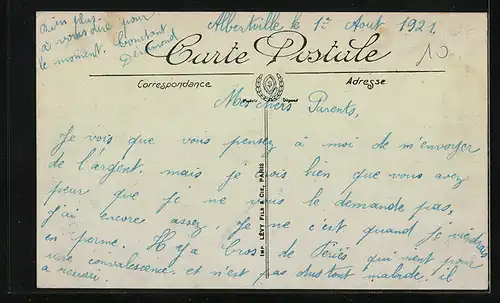 Rien plus
à vous dire pour
le moment. Constant
Dermond
Albertville le 1er Aout 1921.
10
Carte Postale
Correspondance
Adresse
Mes chers Parents,
Je vois que vous pensez à moi de m'envoyer
de l'argent. mais je crois bien que vous avez
peur que je ne vous le demande pas,
j'ai encore assez. Je ne c'est quand je viendrais
en perme. Il y a Cros de Périés qui vient pour
une convalescence, et n'est pas du tout malade. il
a réussi.
IMP. LÉVY FILS & CIE, PARIS